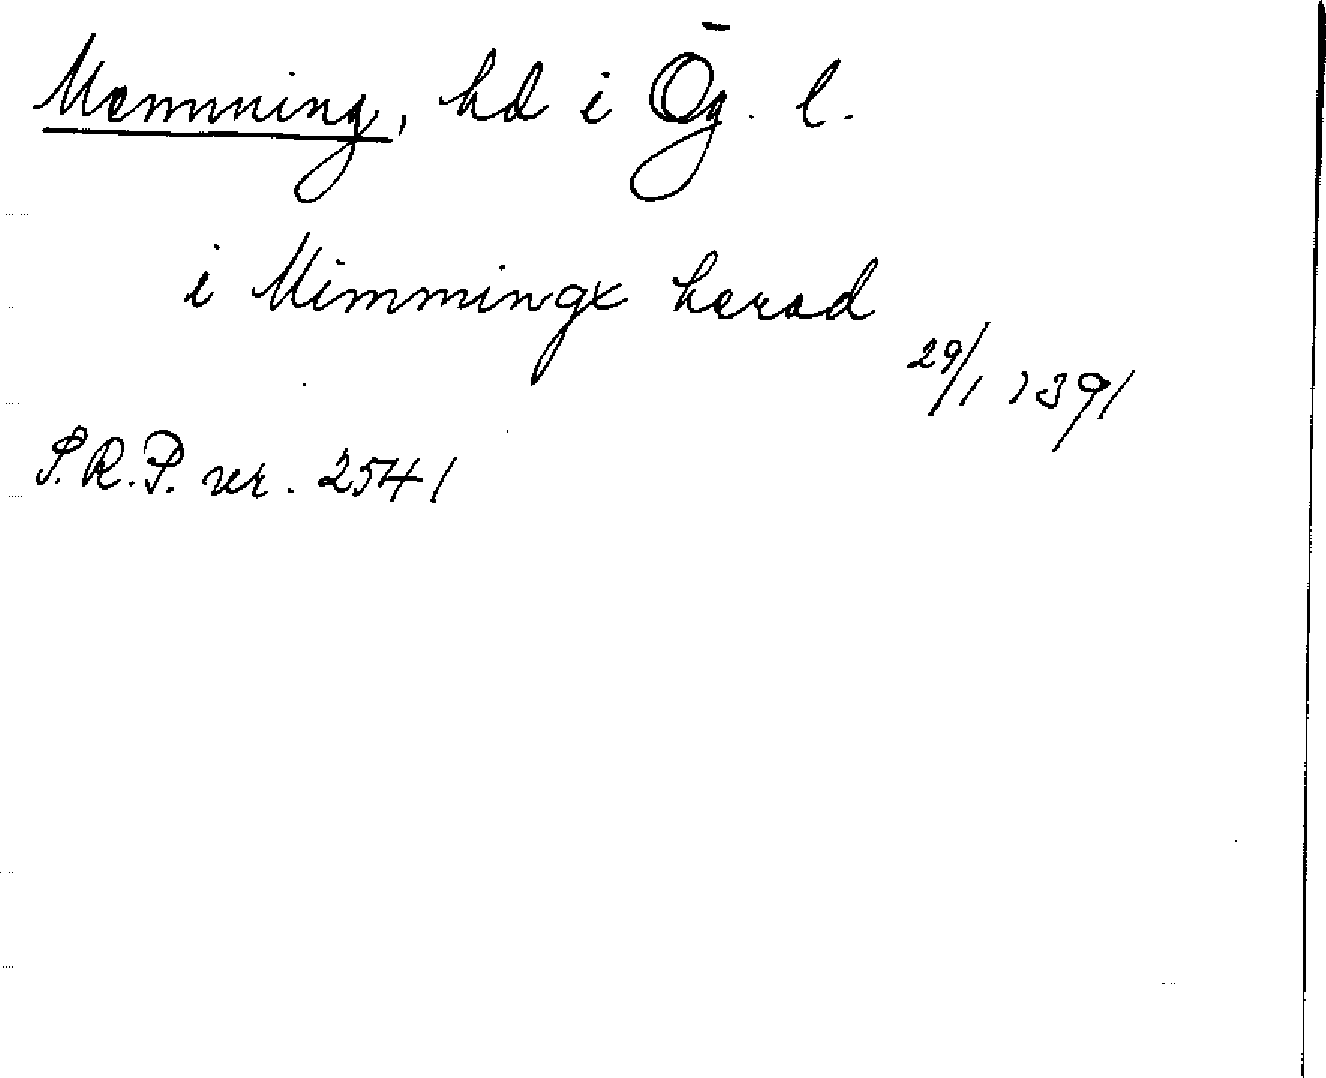 Memming, hd i Ög. l.
i Mimmingx herad
29/1 1391
S.R.P. nr. 2541